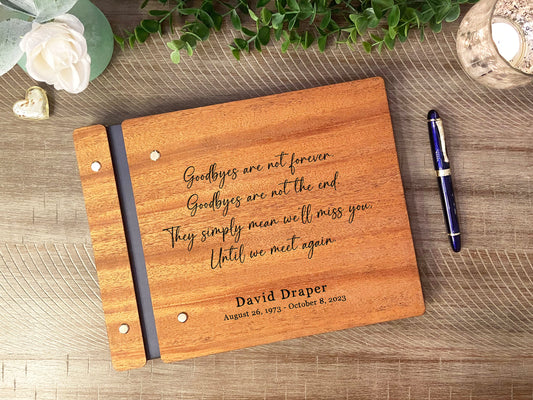 Goodbyes are not forever.
Goodbyes are not the end.
They simply mean we'll miss you,
Until we meet again.
David Draper
August 26, 1973 - October 8, 2023